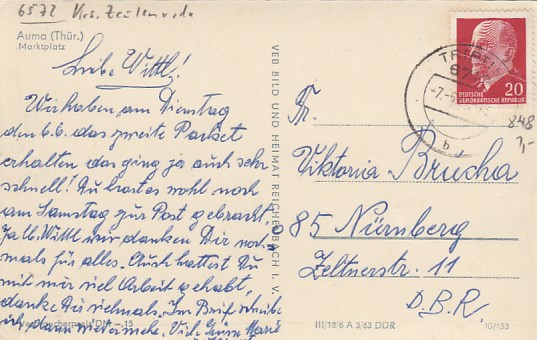 6572 Krs. Zeulenroda
Auma (Thür.)
Marktplatz
Liebe Wittl!
Wir haben am Dienstag
den 6.6. das zweite Packet
erhalten das ging ja auch sehr
schnell! Du hast es wohl noch
am Samstag zur Post gebracht.
Ja lb. Wittl wir danken Dir noch-
mals für alles. Auch hattest Du
mit mir viel Arbeit gehabt,
danke Dir vielmals. Im Brief schreibe
ich dann wieder mehr. Viele Grüße Marie
DM -,15
VEB BILD UND HEIMAT REICHENBACH I. V.
III/18/6 A 3/63 DDR
10/133
TRIPTIS
-7.-6
b
DEUTSCHE
DEMOKRATISCHE REPUBLIK
20
848
Fr.
Viktoria Brucha
85 Nürnberg
Zeltnerstr. 11
D.B.R.